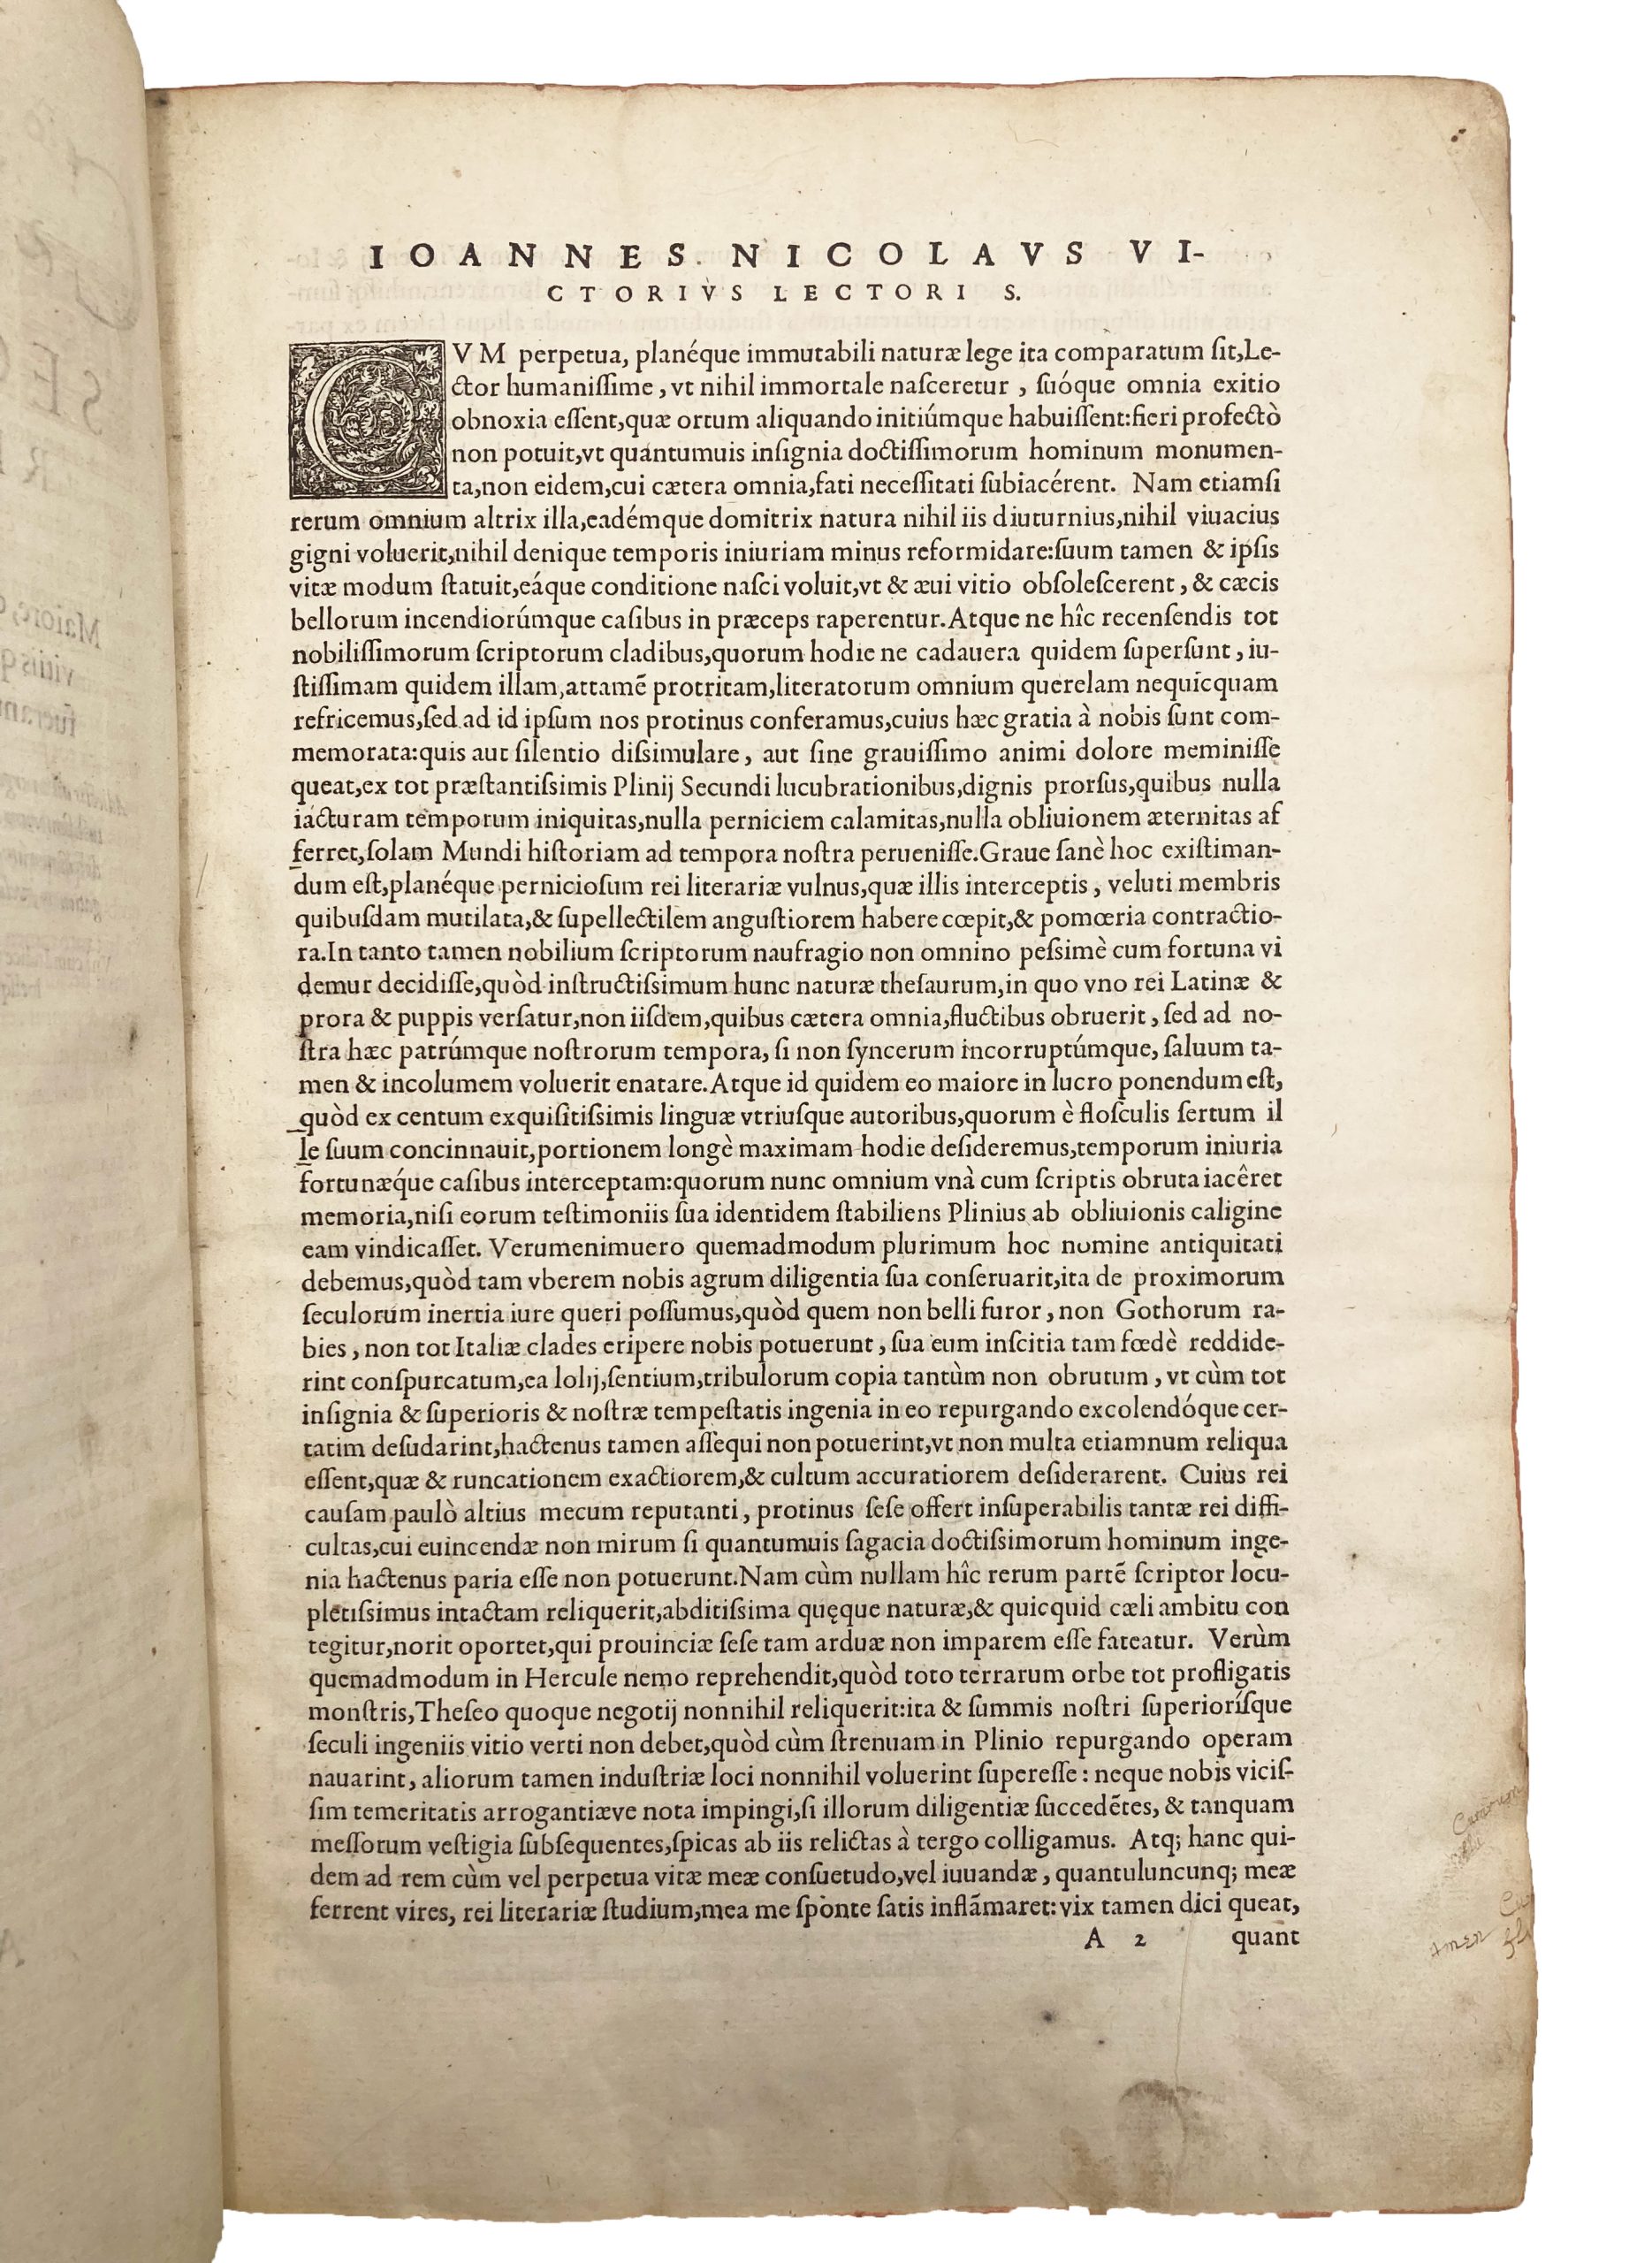 IOANNES NICOLAVS VI-
CTORIVS LECTORI S.
CVM perpetua, planéque immutabili naturæ lege ita comparatum ſit, Le-
ctor humaniſſime, vt nihil immortale naſceretur, ſuóque omnia exitio
obnoxia eſſent, quæ ortum aliquando initiúmque habuiſſent: fieri profectò
non potuit, vt quantumuis inſignia doctiſſimorum hominum monumen-
ta, non eidem, cui cætera omnia, fati neceſſitati ſubiacérent. Nam etiamſi
rerum omnium altrix illa, eadémque domitrix natura nihil iis diuturnius, nihil viuacius
gigni voluerit, nihil denique temporis iniuriam minus reformidare: ſuum tamen & ipſis
vitæ modum ſtatuit, eáque conditione naſci voluit, vt & æui vitio obſoleſcerent, & cæcis
bellorum incendiorúmque caſibus in præceps raperentur. Atque ne hîc recenſendis tot
nobiliſſimorum ſcriptorum cladibus, quorum hodie ne cadauera quidem ſuperſunt, iu-
ſtiſſimam quidem illam, attamē protritam, literatorum omnium querelam nequicquam
refricemus, ſed ad id ipſum nos protinus conferamus, cuius hæc gratia à nobis ſunt com-
memorata: quis aut ſilentio diſsimulare, aut ſine grauiſſimo animi dolore meminiſſe
queat, ex tot præſtantiſsimis Plinij Secundi lucubrationibus, dignis prorſus, quibus nulla
iacturam temporum iniquitas, nulla perniciem calamitas, nulla obliuionem æternitas af
ferret, ſolam Mundi hiſtoriam ad tempora noſtra perueniſſe. Graue ſanè hoc exiſtiman-
dum eſt, planéque pernicioſum rei literariæ vulnus, quæ illis interceptis, veluti membris
quibuſdam mutilata, & ſupellectilem anguſtiorem habere cœpit, & pomœria contractio-
ra. In tanto tamen nobilium ſcriptorum naufragio non omnino peſsimè cum fortuna vi
demur decidiſſe, quòd inſtructiſsimum hunc naturæ theſaurum, in quo vno rei Latinæ &
prora & puppis verſatur, non iiſdem, quibus cætera omnia, fluctibus obruerit, ſed ad no-
ſtra hæc patrúmque noſtrorum tempora, ſi non ſyncerum incorruptúmque, ſaluum ta-
men & incolumem voluerit enatare. Atque id quidem eo maiore in lucro ponendum eſt,
quòd ex centum exquiſitiſsimis linguæ vtriuſque autoribus, quorum è floſculis ſertum il
le ſuum concinnauit, portionem longè maximam hodie deſideremus, temporum iniuria
fortunæque caſibus interceptam: quorum nunc omnium vnà cum ſcriptis obruta iacêret
memoria, niſi eorum teſtimoniis ſua identidem ſtabiliens Plinius ab obliuionis caligine
eam vindicaſſet. Verumenimuero quemadmodum plurimum hoc nomine antiquitati
debemus, quòd tam vberem nobis agrum diligentia ſua conſeruarit, ita de proximorum
ſeculorum inertia iure queri poſſumus, quòd quem non belli furor, non Gothorum ra-
bies, non tot Italiæ clades eripere nobis potuerunt, ſua eum inſcitia tam fœdè reddide-
rint conſpurcatum, ea lolij, ſentium, tribulorum copia tantùm non obrutum, vt cùm tot
inſignia & ſuperioris & noſtræ tempeſtatis ingenia in eo repurgando excolendóque cer-
tatim deſudarint, hactenus tamen aſſequi non potuerint, vt non multa etiamnum reliqua
eſſent, quæ & runcationem exactiorem, & cultum accuratiorem deſiderarent. Cuius rei
cauſam paulò altius mecum reputanti, protinus ſeſe offert inſuperabilis tantæ rei diffi-
cultas, cui euincendæ non mirum ſi quantumuis ſagacia doctiſsimorum hominum inge-
nia hactenus paria eſſe non potuerunt. Nam cùm nullam hîc rerum partē ſcriptor locu-
pletiſsimus intactam reliquerit, abditiſsima quęque naturæ, & quicquid cæli ambitu con
tegitur, norit oportet, qui prouinciæ ſeſe tam arduæ non imparem eſſe fateatur. Verùm
quemadmodum in Hercule nemo reprehendit, quòd toto terrarum orbe tot profligatis
monſtris, Theſeo quoque negotij nonnihil reliquerit: ita & ſummis noſtri ſuperioríſque
ſeculi ingeniis vitio verti non debet, quòd cùm ſtrenuam in Plinio repurgando operam
nauarint, aliorum tamen induſtriæ loci nonnihil voluerint ſupereſſe: neque nobis viciſ-
ſim temeritatis arrogantiæve nota impingi, ſi illorum diligentiæ ſuccedētes, & tanquam
meſſorum veſtigia ſubſequentes, ſpicas ab iis relictas à tergo colligamus. Atq; hanc qui-
dem ad rem cùm vel perpetua vitæ meæ conſuetudo, vel iuuandæ, quantuluncunq; meæ
ferrent vires, rei literariæ ſtudium, mea me ſponte ſatis inflāmaret: vix tamen dici queat,
A 2 quant
Amen